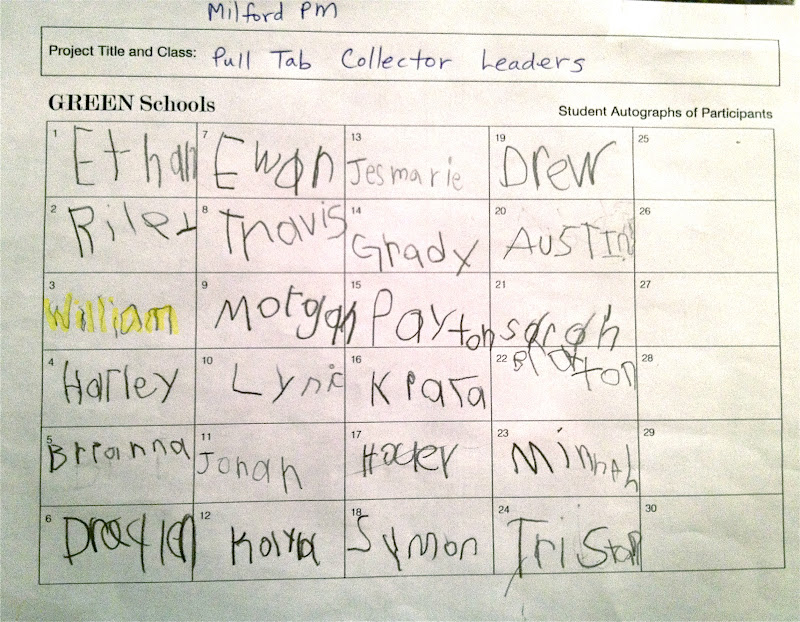 Milford PM
Project Title and Class: Pull Tab Collector Leaders
GREEN Schools
Student Autographs of Participants
1 Ethan 7 Ewan 13 Jesmarie 19 Drew 25
2 Riley 8 Travis 14 Grady 20 AUSTIN 26
3 William 9 Morgan 15 Payton 21 sarah 27
4 Harley 10 Lyric 16 Kiara 22 Braxton 28
5 Brianna 11 Jonah 17 23 Minnah 29
6 12 Kaiya 18 Symon 24 Tristan 30